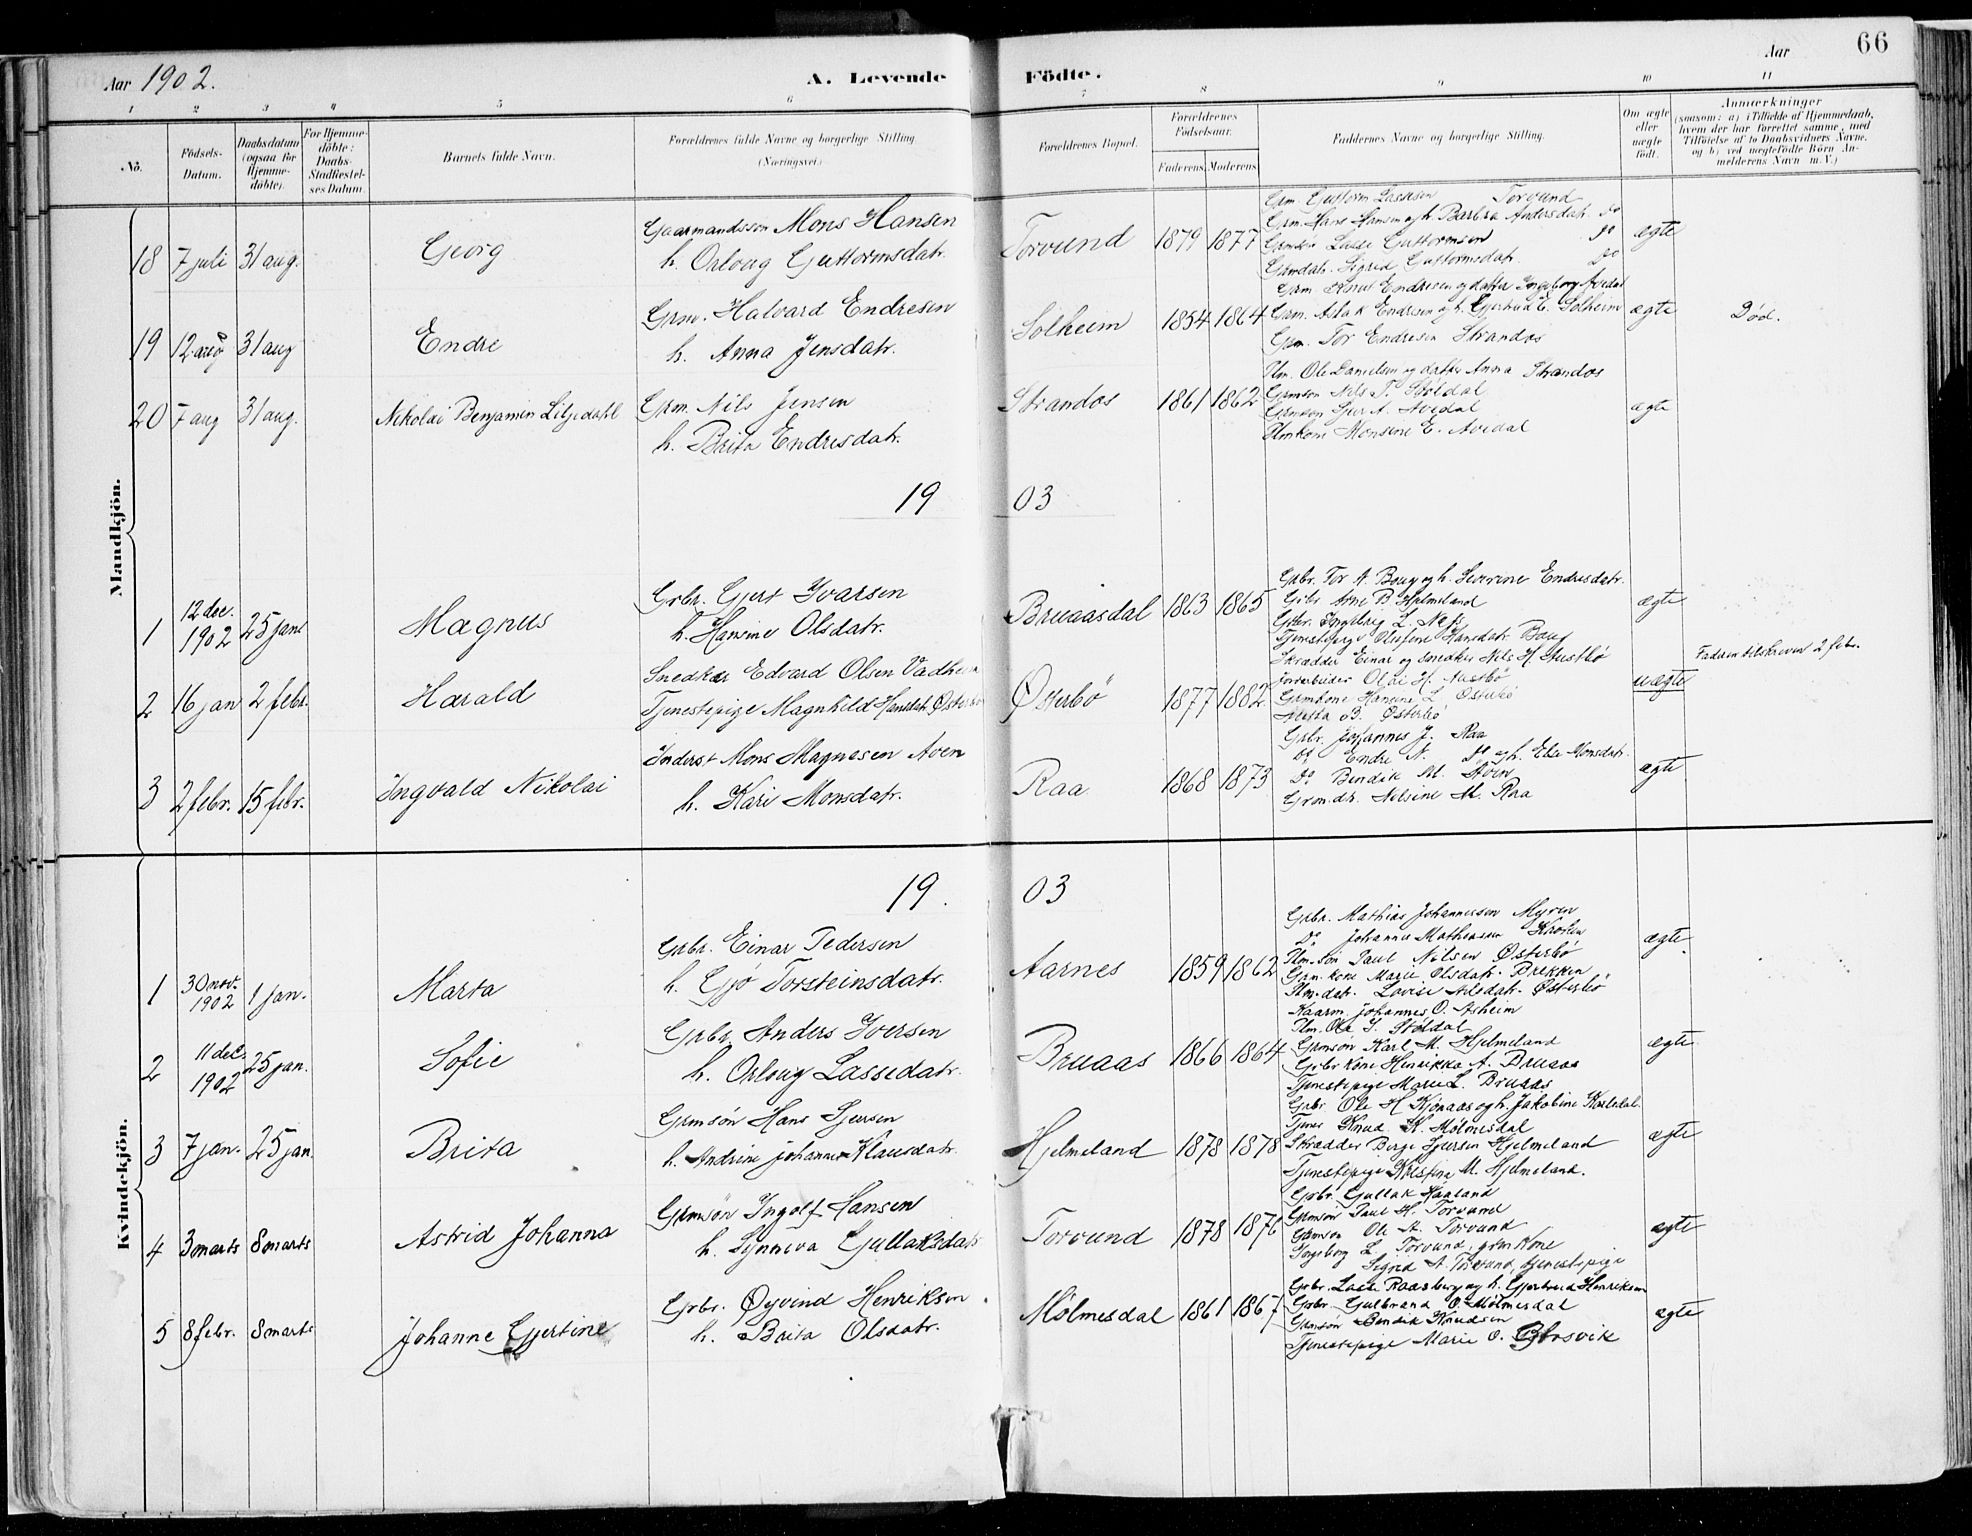 66
Aar 1902.
A. Levende Födte.
Aar
1 2 3 4 5 6 7 8 9 10 11
No.
Födsels-Datum.
Daabsdatum (ogsaa for Hjemme-döbte).
For Hjemme-döbte: Daabs-Stadfæstel-ses Datum.
Barnets fulde Navn.
Forældrenes fulde Navne og borgerlige Stilling (Næringsvei.)
Forældrenes Bopæl.
Forældrenes Födselsaar.
Faderens. Moderens.
Faddernes Navne og borgerlige Stilling.
Om ægte eller uægte födt.
Anmærkninger (saasom: a) i Tilfælde af Hjemmedaab, hvem der har forrettet samme, med Tilföielse af to Daabsvidners Navne, og b) ved uægtefödte Börn An-melderens Navn m. V.)
Mandkjön.
18 7 juli 31 aug. Georg
Gaarmandsson Mons Hansen
h. Orloug Guttormsdatr.
Torvund 1879 1877
Grm. Guttorm Lassesen Torvund
Grm. Hans Hansen og h. Barbra Andersdatr. Do
Grmsøn Lasse Guttormsen Do
Grmdatr. Sigrid Guttormsdatr. Do
ægte
19 12 aug 31 aug Endre
Grm. Halvard Endresen
h. Anna Jensdatr.
Solheim 1854 1864
Grm. Knut Endresen og datter Ingeborg Avedal
Grm. Aslak Endresen og h. Gjertrud E. Solheim
Grm. Tor Endresen Strandos
ægte Død.
20 7 aug 31 aug. Nikolai Benjamin Liljedahl
Grm. Nils Jensen
h. Brita Endresdatr.
Strandos 1861 1862
Plm. Ole Danielsen og datter Anna Strandos
Grmson Nils T. Støldal
Grmson Sjur A. Avedal
Plmkone Monsine E. Avedal
ægte
19 03
1 12 dec. 1902 25 jan. Magnus
Grbr. Gjert Ivarsen
h. Hansine Olsdatr.
Bruaasdal 1863 1865
Grbr. Tor A. Boug og h. Severine Endresdatr.
Grbr Arne B Hjelmeland
Ingebrig L.
Tjenestepige Olufine Hansdatr. Boug
ægte
2 16 jan 2 febr. Harald
Snedker Edvard Olsen Vadheim
Tjenestepige Magnhild Hansdatr. Østerbø
Østerbø 1877 1882
Skrædder Einar og snedker Nils H. Austbø
Olai H.
Grmkone Hansine L. Østerbø
O. Østerbø
uægte Faderen tilskreven 2 febr.
3 2 febr. 15 febr. Ingvald Nikolai
Inderst Mons Magnesen Aven
h. Kari Monsdatr.
Raa 1868 1873
Grbr. Johannes J. Raa
Do Endre N. Do og h. Eli Monsdatr.
Do Bendik M.
Grm.dtr. Nilsine M. Raa
ægte
Kvindekjön.
19. 03
1 30 nov. 1902 1 jan. Marta
Grbr. Einar Pedersen
h. Gjø Torsteinsdatr.
Aarnes 1859 1862
Grbr. Mathias Johannessen Myren
Do Johannes Mathiassen
Plm. søn Paul Nilsen Østerbø
Grm. kone Marie Olsdatr. Brekken
Plm. datr. Lovise Nilsdatr. Østerbø
ægte.
2 11 dec. 1902 25 jan. Sofie
Grbr. Anders Iversen
h. Orloug Lassedatr.
Bruaas 1866 1864
Kaarm. Johannes O. Asheim
Plm. Ole J. Støldal
Grmsøn Karl M. Hjelmeland
Grbr kone Henrikka A. Bruaas
Tjenestepige Marie L. Bruaas
ægte
3 7 jan. 25 jan. Brita
Grmsøn Hans Sjursen
h. Andrine Johanna Klausdatr.
Hjelmeland 1878 1878
Grbr. Ole H Kjønaas og h. Jakobine
Tjener Knud K. Mølmesdal
Skrædder Børge Sjursen Hjelmeland
Tjenestepige Kristine M. Hjelmeland.
ægte
4 3 marts 8 marts Astrid Johanna
Grmsøn Ingolf Hansen
h. Synneva Gullaksdatr
Torvund 1878 1876
Grbr. Gullak Haaland
Grmsøn Paul H. Torvund
Grmsøn Ole A. Torvund
Ingeborg L. Torvund, grm kone
Sigrid A. Torvund, tjenestepige
ægte
5 8 febr. 8 marts Johanne Gjertine
Grbr. Øyvind Henriksen
h. Brita Olsdatr.
Mølmesdal 1861 1867
Grbr. Lasse Raasberg og h. Gjertrud Henriksen
Grbr. Gulbrand O. Mølmesdal
Grmsøn Bendik Knudsen
Tjenestepige Marie O.
ægte